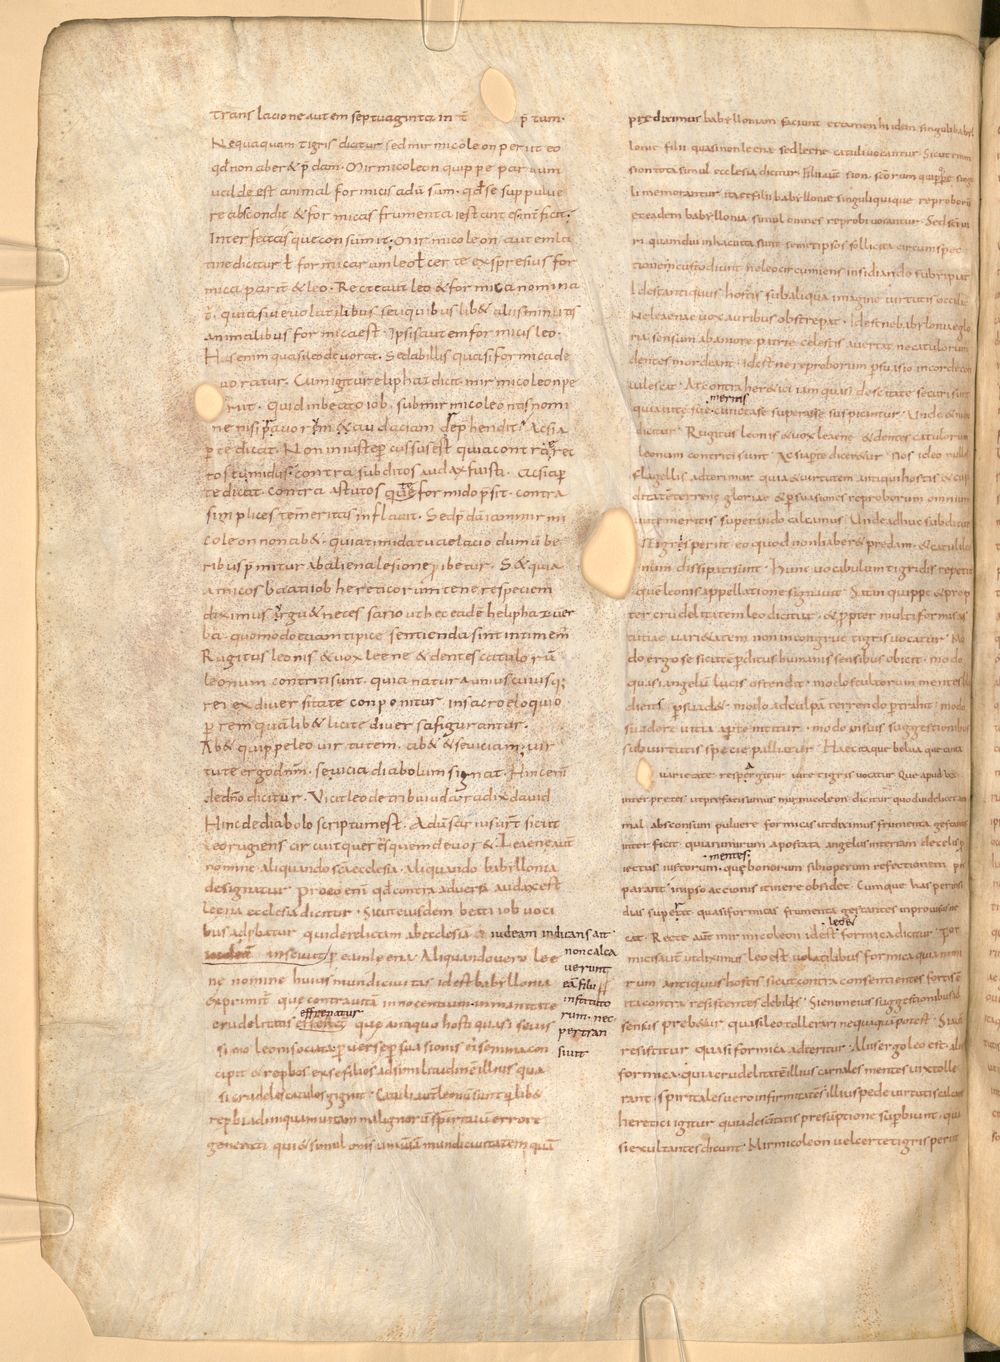 Translacione autem septuaginta in t̄ p̄tum.
Nequaquam tigris dicitur sed mirmicoleon periit eo
qđ non aber& p̄dam. Mirmicoleon quippe paruum
ualde est animal formicis adūsum. qđ se suppuluere
re abscondit & formicas frumenta iestantes int̄ficit.
Interfectasque consumit. Mirmicoleon autem la
tine dicitur ł formicarum leo ł certe expressius for
mica parit & leo. Recte aut leo & formica nomina
t̄. quia siue uolatilibus seu quibuslib& aliis minutis
animalibus formica est. Ipsis autem formicis leo.
Has enim quasi leo deuorat. Sed ab illis quasi formica de
uoratur. Cum igitur eliphaz dicit mirmicoleon pe
riit. Quid in beato iob. sub mirmicoleontis nomi
ne nisi pauorem & audaciam dep̄hendit. Ac si a
p̄te dicat. Non iniuste p̄cussus est quia contra rec
tos timidus. contra subditos audax fuisti. Ac si ap̄
te dicat. contra astutos que te formido p̄sit. contra
simplices temeritas inflauit. Sed p̄dā iam mirmi
coleon non ab&. quia timida tua elacio dum ube
ribus p̄mitur ab aliena lesione ibetur. S& quia
amicos beati iob hereticorum tenere speciem
diximus urgu& necessario ut hec eadē heliphaz uer
ba quomodo etiam tipice sentienda sint intimem̄
Rugitus leonis & uox leene & dentes catulorū
leonum contriti sunt. quia natura uniuscuiusq;
rei ex diuersitate conponitur. in sacro eloquio
p̄ rem quālib& licite diuersa figurantur.
Ab& quippe leo uirtutem. ab& & seuiciam. uir
tute ergo dnm̄. seuicia diabolum signat. Hinc enī
de dn̄o dicitur. Vicit leo de tribu iuda radix dauid
Hinc de diabolo scriptum est. Adūsarius ur̄t sicut
leo rugiens circuit quer̄s quem deuor&. Leaene aut
nomine aliquando sc̄a ecclesia. aliquando babillonia
designatur Pro eo enī qđ contra aduersa audax est
leena ecclesia dicitur. Sicut eiusdem beati iob uoci
bus adp̄batur qui derelictam ab ecclesiā iudeam indicans ait
insciut p̄ eam leena. Aliquando uero lee
non calca
uerunt
eā filii
institoto
rum. nec
pertran
siuit
ne nomine huius mundi ciuitas id est babillonia
exprimit̄ que contra uitā innocentium inmanitate
effreratur
crudelitatis que antiquo hosti quasi seuis
simo leoni sociata p̄uerse p̄suasionis ei semina con
cipit & rep̄bos ex se filios ad similitudinē illius qua
si crudeles catulos gignit. Catuli aut leonū sunt quilib&
rep̄bi ad iniquam uitam malignorū sp̄irituū errore
generati qui & simul om̄s unam mundi ciuitatem quā
prediximus babyllomam faciunt et tamen hi idem singuli babyl
lonie filii quasi non leene sed leene catuli uocantur. Sicut enim
sion tota simul ecclesia dicitur. Filii aut sion. sc̄orum quippe singu
li memorantur ita et filii babyllonie singuli quique reproborū
et eadem babyllonia simul omnes reprobi uocantur. Sed sc̄i ui
ri quamdiu in hac uita sunt semetipsos sollicita circumspec
tione custodiunt ne leo circumiens insidiando subripiat
Id est antiquus hostis sub aliqua imagine uirtutis occidat
Ne leaenae uox auribus obstrepat. Id est ne babylonia glo
ria sensum ab amore patrie celestis auertat ne catulorum
dentes mordeant. Id est ne reproborum p̄suasio in corde con
ualescat. At contra her&ici iam quasi de sc̄itate securi sunt
meritis
quia uite sue cunctase superasse suspicantur. Unde & nunc
dicitur Rugitus leonis & uox leaene & dentes catulorum
leonum contriti sunt. Ac si ap̄te dicer&ur Nos ideo nullis
flagellis adterimur quia & uirtutem antiqui hostis & cupi
ditatē terrenę gloriae & p̄suasiones reproborum omnium
uite meritis superando calcamus Unde adhuc subditur
Tigris periit eo quod non haber& predam. & catuli leo
num dissipati sunt. Hunc uocabulum tigridis repetit
que leonis appellatione signauit Satan quippe & prop
ter crudelitatem leo dicitur. & p̄pter multiformis as
tutiae uari&atem non incongrue tigris uocatur. Mo
do ergo se sicut ē p̄ditus humanis sensibus obicit. modo
quasi angelū lucis ostendit. modo stultorum mentes blan
diens p̄suad&. modo ad culpā terrendo p̄trahit. modo
suadere uitia ap̄te nititur. modo in suis suggestionibus
sub uirtutis specie palliatur Haec itaque belua que tanta
uarietate respergitur iure tigris uocatur Que apud lxx
interpretes ut prefati sumus mirmicoleon dicitur quod uidelicet ani
mal absconsum puluere formicas ut diximus frumenta gestantes
interficit quia nimirum apostata angelus in terram de celo p̄
mentes
iectus iustorum. que bonorum sibi operum refectionem prę
parant in ipso accionis itinere obsidet Cumque has per insi
dias superat quasi formicas frumenta gestantes inprouisus ne
leo &
cat. Recte aut̄ mirmicoleon id est formica dicitur For
micis aut̄ ut diximus leo est uolatilibus formica quia nimi
rum antiquus hostis sicut contra consentientes fortis ē
ita contra resistentes debilis Si enim eius suggestionibus ad
sensus preb&ur quasi leo tollerari nequaquā potest. Si aut̄
resistitur quasi formica adteritur. Aliis ergo leo est. aliis
formica. quia crudelitatē illius carnales mentes uix tolle
rant. spiritales uero infirmitatē illius pede uirtutis calcant
heretici igitur quia de sc̄itatis presūptione sup̄biunt. qua
si exultantes dicunt. Mirmicoleon uel certe tigris periit